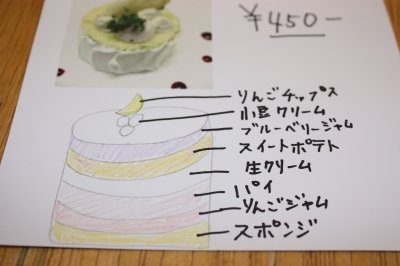 ¥450-
りんごチップス
小豆クリーム
ブルーベリージャム
スイートポテト
生クリーム
パイ
りんごジャム
スポンジ